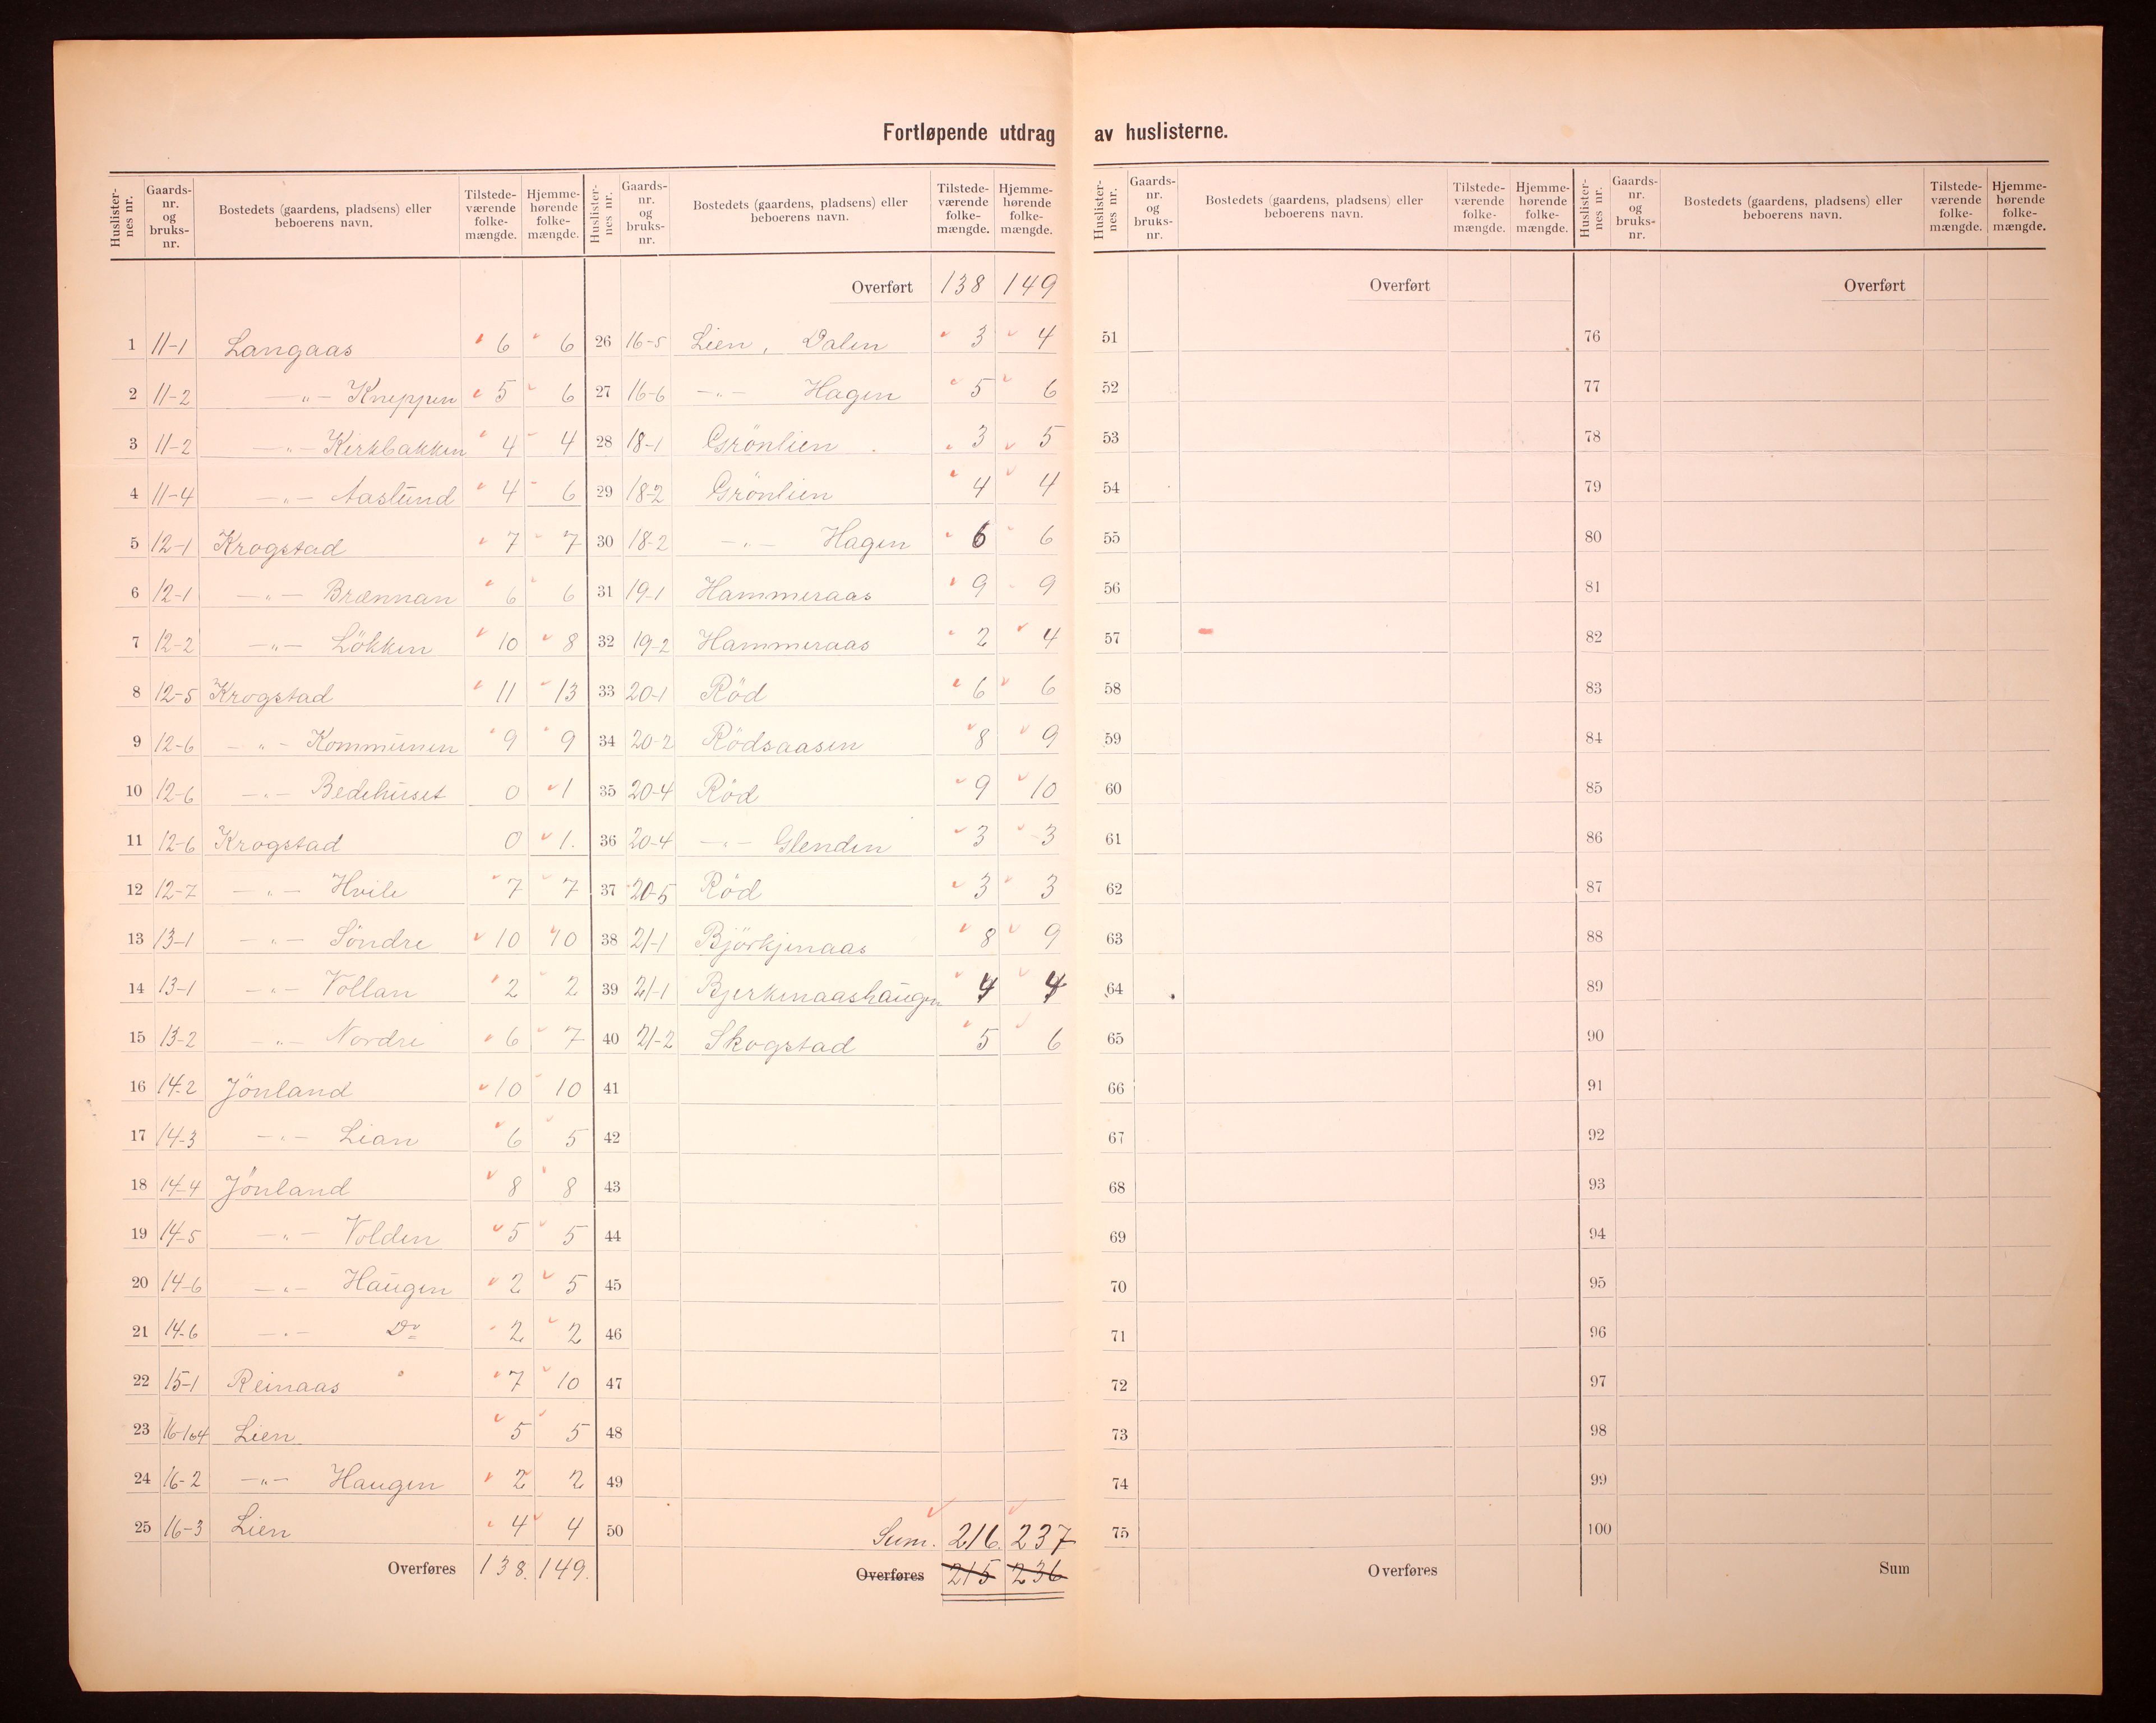 Fortløpende utdrag av huslisterne.
Huslister-nes nr. Gaards-nr. og bruks-nr. Bostedets (gaardens, pladsens) eller beboerens navn. Tilstede-værende folke-mængde. Hjemme-hørende folke-mængde.
1 11-1 Langaas 6 6
2 11-2 -"- Kneppen 5 6
3 11-2 -"- Kirkbakken 4 4
4 11-4 -"- Aaslund 4 6
5 12-1 Krogstad 7 7
6 12-1 -"- Brænnan 6 6
7 12-2 -"- Lökken 10 8
8 12-5 Krogstad 11 13
9 12-6 -"- Kommunen 9 9
10 12-6 -"- Bedehuset 0 1
11 12-6 Krogstad 0 1.
12 12-7 -"- Hvile 7 7
13 13-1 -"- Söndre 10 10
14 13-1 -"- Vollan 2 2
15 13-2 -"- Nordre 6 7
16 14-2 Jönland 10 10
17 14-3 -"- Lian 6 5
18 14-4 Jönland 8 8
19 14-5 -"- Volden 5 5
20 14-6 -"- Haugen 2 5
21 14-6 -"- Do 2 2
22 15-1 Reinaas 7 10
23 16-1o4 Lien 5 5
24 16-2 -"- Haugen 2 2
25 16-3 Lien 4 4
Overføres 138. 149.
Huslister-nes nr. Gaards-nr. og bruks-nr. Bostedets (gaardens, pladsens) eller beboerens navn. Tilstede-værende folke-mængde. Hjemme-hørende folke-mængde.
Overført 138 149
26 16-5 Lien, Dalen 3 4
27 16-6 -"- Hagen 5 6
28 18-1 Grönlien 3 5
29 18-2 Grönlien 4 4
30 18-2 -"- Hagen 6 6
31 19-1 Hammeraas 9 9
32 19-2 Hammeraas 2 4
33 20-1 Röd 6 6
34 20-2 Rödsaasen 8 9
35 20-4 Röd 9 10
36 20-4 -"- Glenden 3 3
37 20-5 Röd 3 3
38 21-1 Björkjenaas 8 9
39 21-1 Bjerkenaashaugen 4 4
40 21-2 Skogstad 5 6
41
42
43
44
45
46
47
48
49
50 Sum. 216. 237
Overføres 215 236
Huslister-nes nr. Gaards-nr. og bruks-nr. Bostedets (gaardens, pladsens) eller beboerens navn. Tilstede-værende folke-mængde. Hjemme-hørende folke-mængde.
Overført
51
52
53
54
55
56
57
58
59
60
61
62
63
64
65
66
67
68
69
70
71
72
73
74
75
Overføres
Huslister-nes nr. Gaards-nr. og bruks-nr. Bostedets (gaardens, pladsens) eller beboerens navn. Tilstede-værende folke-mængde. Hjemme-hørende folke-mængde.
Overført
76
77
78
79
80
81
82
83
84
85
86
87
88
89
90
91
92
93
94
95
96
97
98
99
100
Sum